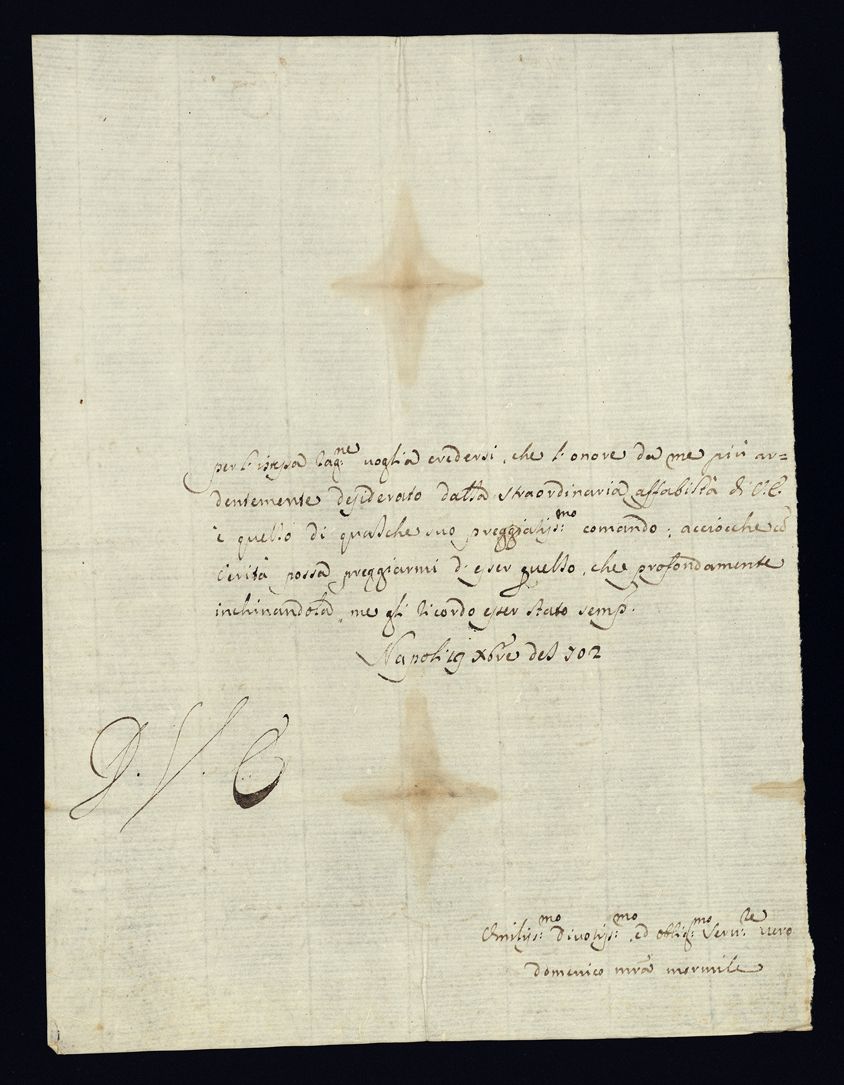 per l'istessa Rag:ne voglia credersi, che l'onore da me più ar=
dentemente desiderato dalla straordinaria affabilità di V.E.
è quello di qualche suo preggialiss:mo comando; acciocche cō
verità possa preggiarmi d'esser quello, che profondamente
inchinandola, me gli ricordo esser stato semp:
Napoli 19 Xbre del 702
D. V. E
Umiliss:mo Divotiss:mo, ed obblig:mo Serv:re vero
Domenico mra mormile